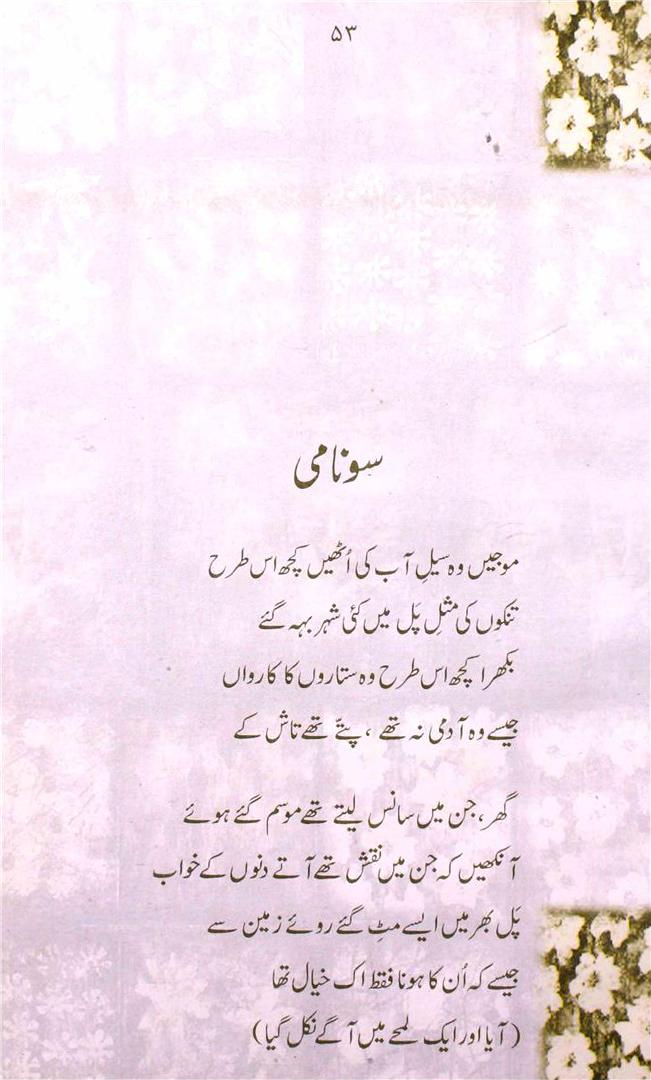 ۵۳
سونامی
موجیں وہ سیلِ آب کی اُٹھیں کچھ اس طرح
تنکوں کی مثلِ پَل میں کئی شہر بہہ گئے
بکھرا کچھ اس طرح وہ ستاروں کا کارواں
جیسے وہ آدمی نہ تھے ، پتّے تھے تاش کے
گھر، جن میں سانس لیتے تھے موسم گئے ہوئے
آنکھیں کہ جن میں نقش تھے آتے دنوں کے خواب
پَل بھر میں ایسے مِٹ گئے روئے زمین سے
جیسے کہ اُن کا ہونا فقط اک خیال تھا
( آیا اور ایک لمحے میں آگے نکل گیا )